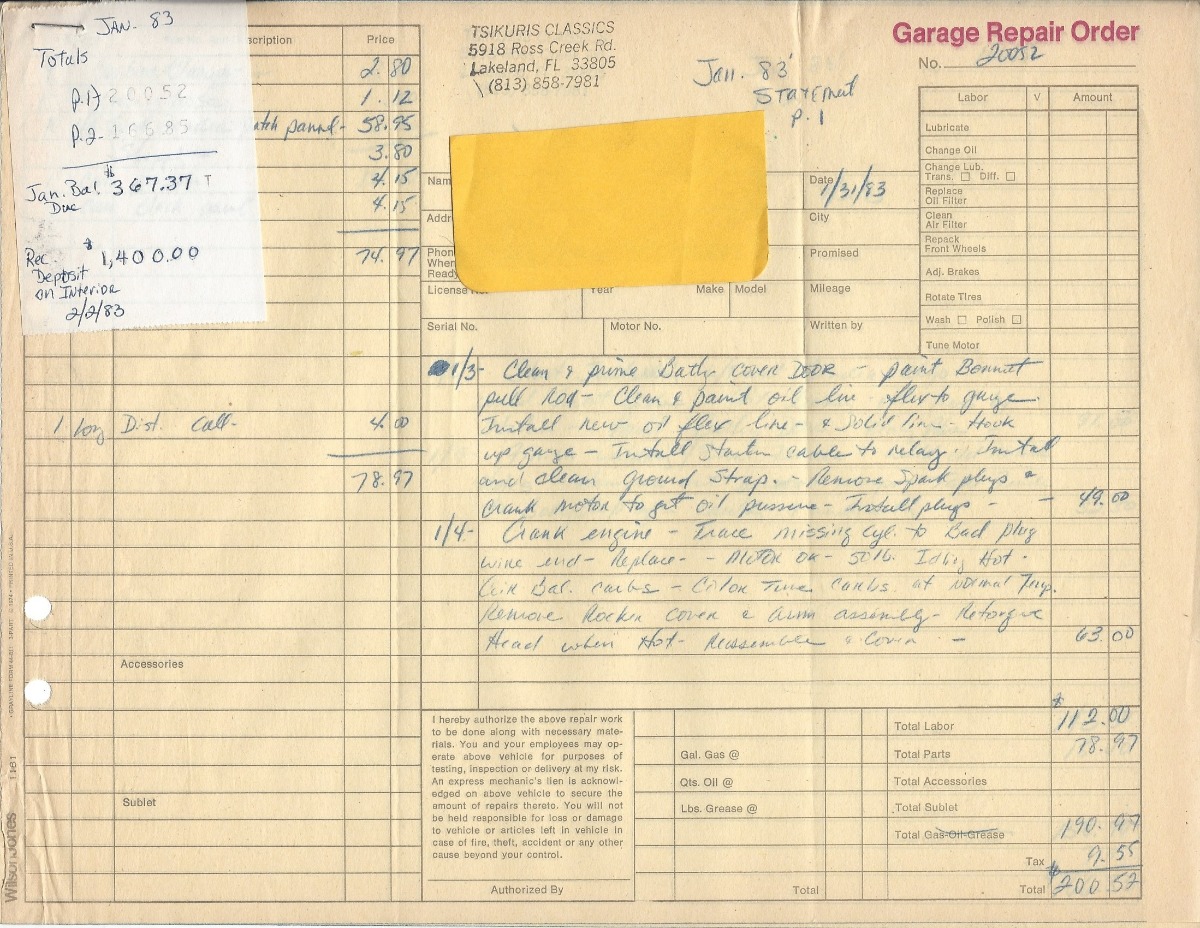 JAN. 83
Totals
p.1) 20052
p.2- 16685
Jan. Bal. $367.37 T
Due
Rec. $1,400.00
Deposit
on Interior
2/2/83
scription Price
2.80
1.12
pannel- 58.95
3.80
4.15
4.15
74.97
1 Long Dist. Call- 4.00
78.97
Accessories
Sublet
TSIKURIS CLASSICS
5918 Ross Creek Rd.
Lakeland, FL 33805
(813) 858-7981
Jan. 83'
STATEMENT
P. 1
Garage Repair Order
No. 20052
Nam
Date 1/31/83
Addr
City
Phon
When
Ready
Promised
License No.
Year
Make
Model
Mileage
Serial No.
Motor No.
Written by
Labor V Amount
Lubricate
Change Oil
Change Lub.
Trans. Diff.
Replace
Oil Filter
Clean
Air Filter
Repack
Front Wheels
Adj. Brakes
Rotate Tires
Wash Polish
Tune Motor
1/3- Clean & prime Batty cover DOOR - paint Bonnet
pull Rod- Clean & paint oil line - flex to gauge.
Install new oil flex line- & Solid line- Hook
up gauge - Install Starter cable to relay. Install
and clean ground Strap. - Remove Spark plugs &
crank motor to get oil pressure - Install plugs - - 49.00
1/4- Crank engine - Trace missing cyl. to Bad plug
wire end- Replace- - Motor on - 50 lb. Idling Hot -
Bal. carbs - Color Tune carbs at Normal Temp.
Remove Rocker cover & arm assembly- Retorque
Head when Hot- Reassemble & Cover - 63.00
I hereby authorize the above repair work
to be done along with necessary mate-
rials. You and your employees may op-
erate above vehicle for purposes of
testing, inspection or delivery at my risk.
An express mechanic's lien is acknowl-
edged on above vehicle to secure the
amount of repairs thereto. You will not
be held responsible for loss or damage
to vehicle or articles left in vehicle in
case of fire, theft, accident or any other
cause beyond your control.
Authorized By
Gal. Gas @
Qts. Oil @
Lbs. Grease @
Total
Total Labor $112.00
Total Parts 78.97
Total Accessories
Total Sublet
Total Gas-Oil-Grease 190.97
Tax 9.55
Total $200.52
WilsonJones